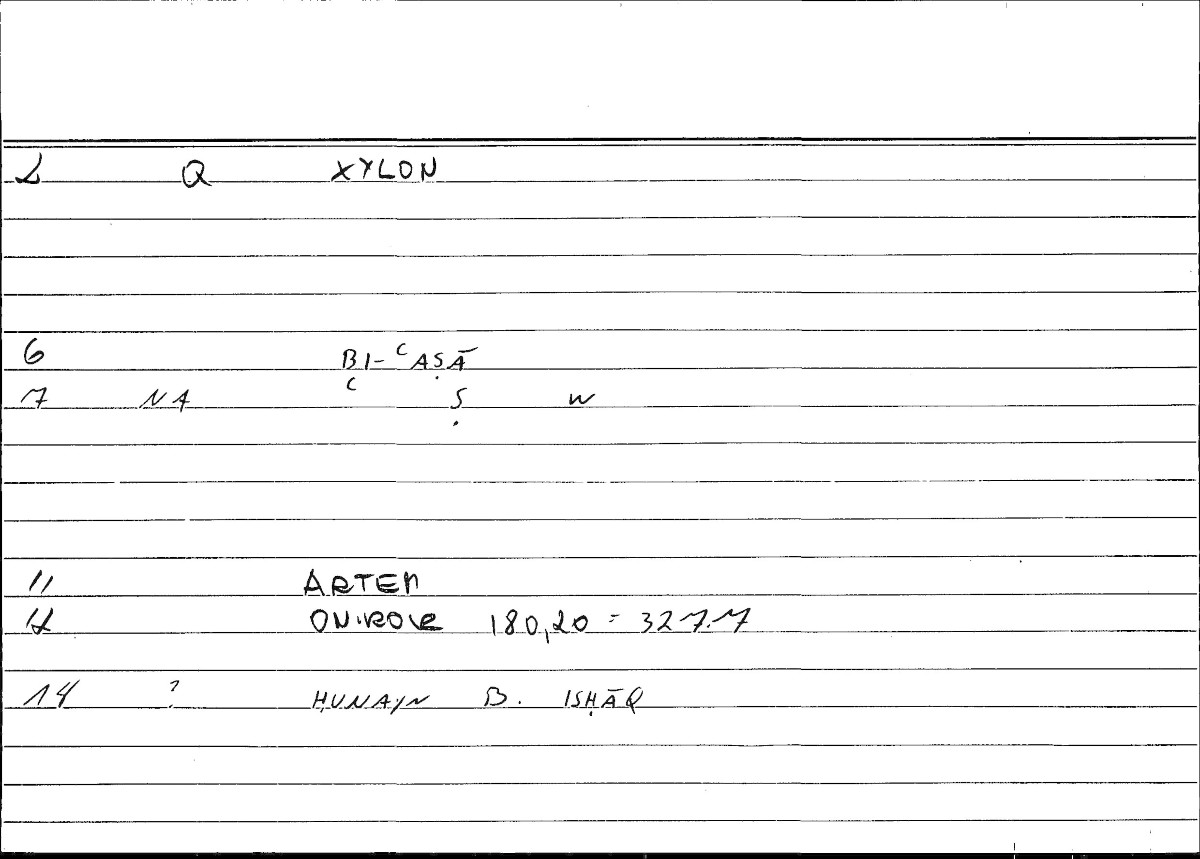 2 Q XYLON
6 BI-ʿAṢĀ
7 NA ʿ Ṣ W
11 ARTEM
12 ONIROCR 180,20 = 327.7
14 ? ḤUNAYN B. ISḤĀQ